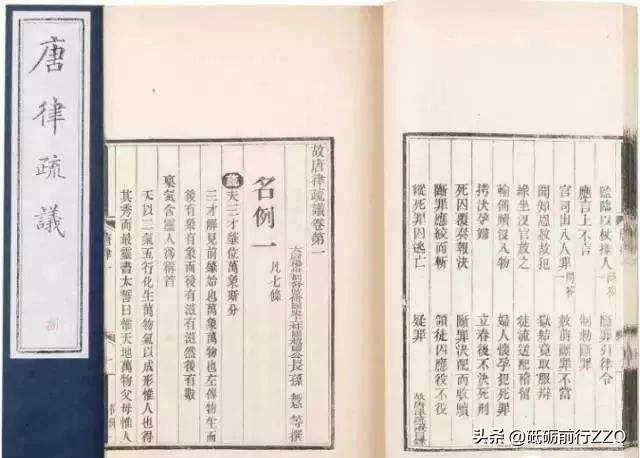 唐律疏議
監臨以杖捶人 問答 斷罪引律令
應言上不言 制勑斷罪
官司出入人罪 問答 赦前斷罪不當
聞知恩赦故犯 獄結竟取服辯
緣坐沒官放之 徒流送配稽留
輸備贖沒入物 婦人懷孕犯死罪
拷決孕婦 立春後不決死刑
死囚覆奏報決 斷罪決配而收贖
斷罪應絞而斬 領徒囚應役不役
縱死罪囚逃亡 疑罪
故唐律疏議卷第一
公長孫 等撰
名例一 凡七條
疏 夫三才肇位萬象斯分
三才解見前肇始也萬象萬物也左傳物生而
後有象有象而後有滋有滋然後有數
稟氣含靈人為稱首
天以二氣五行化生萬物氣以成形惟人也得
其秀而最靈書太誓曰惟天地萬物父母惟人
唐律一
头条 @砥砺前行ZZQ